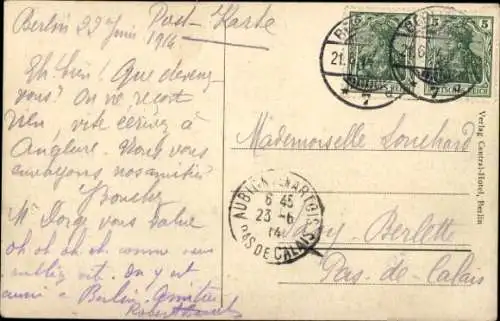 Berlin 22 Juin
1914
Post-Karte
Eh bien! Que devenez
vous? On ne reçoit
rien, vite écrivez à
Anglure. Nous vous
envoyons nos amitiés
Mr Dorge vous salue
oh oh oh oh comme vous
oubliez vit. On y est
aussi - Berlin. Amitiés
Robert
BERLIN
21.6.14
5
DEUTSCHES REICH
Mademoiselle Louchard
Berlette
Pas-de-Calais
AUBIGNY-EN-ARTOIS
6 45
23 -6
14
PAS DE CALAIS
Verlag Central-Hotel, Berlin